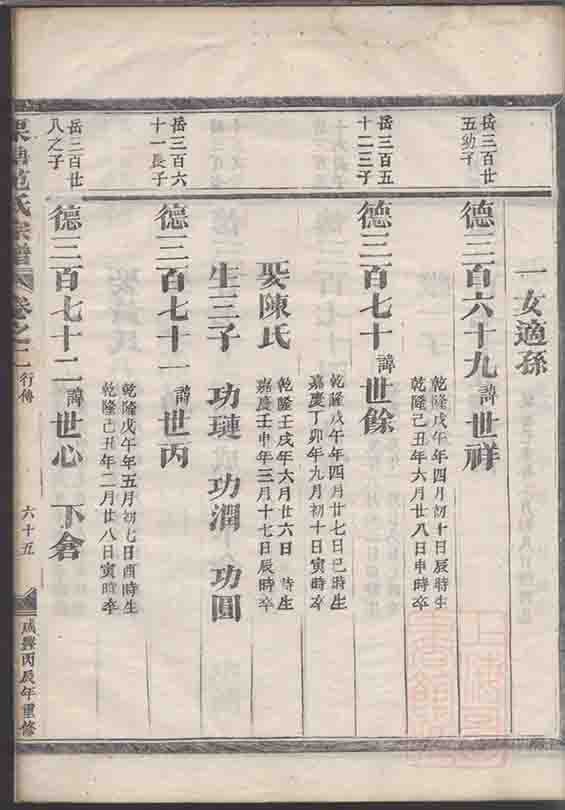 一女適孫
岳三百廿
五幼子
德三百六十九諱世祥
乾隆戊午年四月初十日辰時生
乾隆己丑年六月廿八日申時卒
岳三百五
十二三子
德三百七十諱世餘
乾隆戊午年四月廿七日巳時生
嘉慶丁卯年九月初十日寅時卒
娶陳氏
乾隆壬戌年六月廿六日 時生
嘉慶壬申年三月十七日辰時卒
生三子 功璉 功潤 功圓
岳三百六
十一長子
德三百七十一諱世丙
乾隆戊午年五月初七日酉時生
乾隆己丑年二月廿八日寅時卒
岳三百廿
八之子
德三百七十二諱世心 下倉
范氏宗譜 卷之二 行傳 六十五 咸豐丙辰年重修